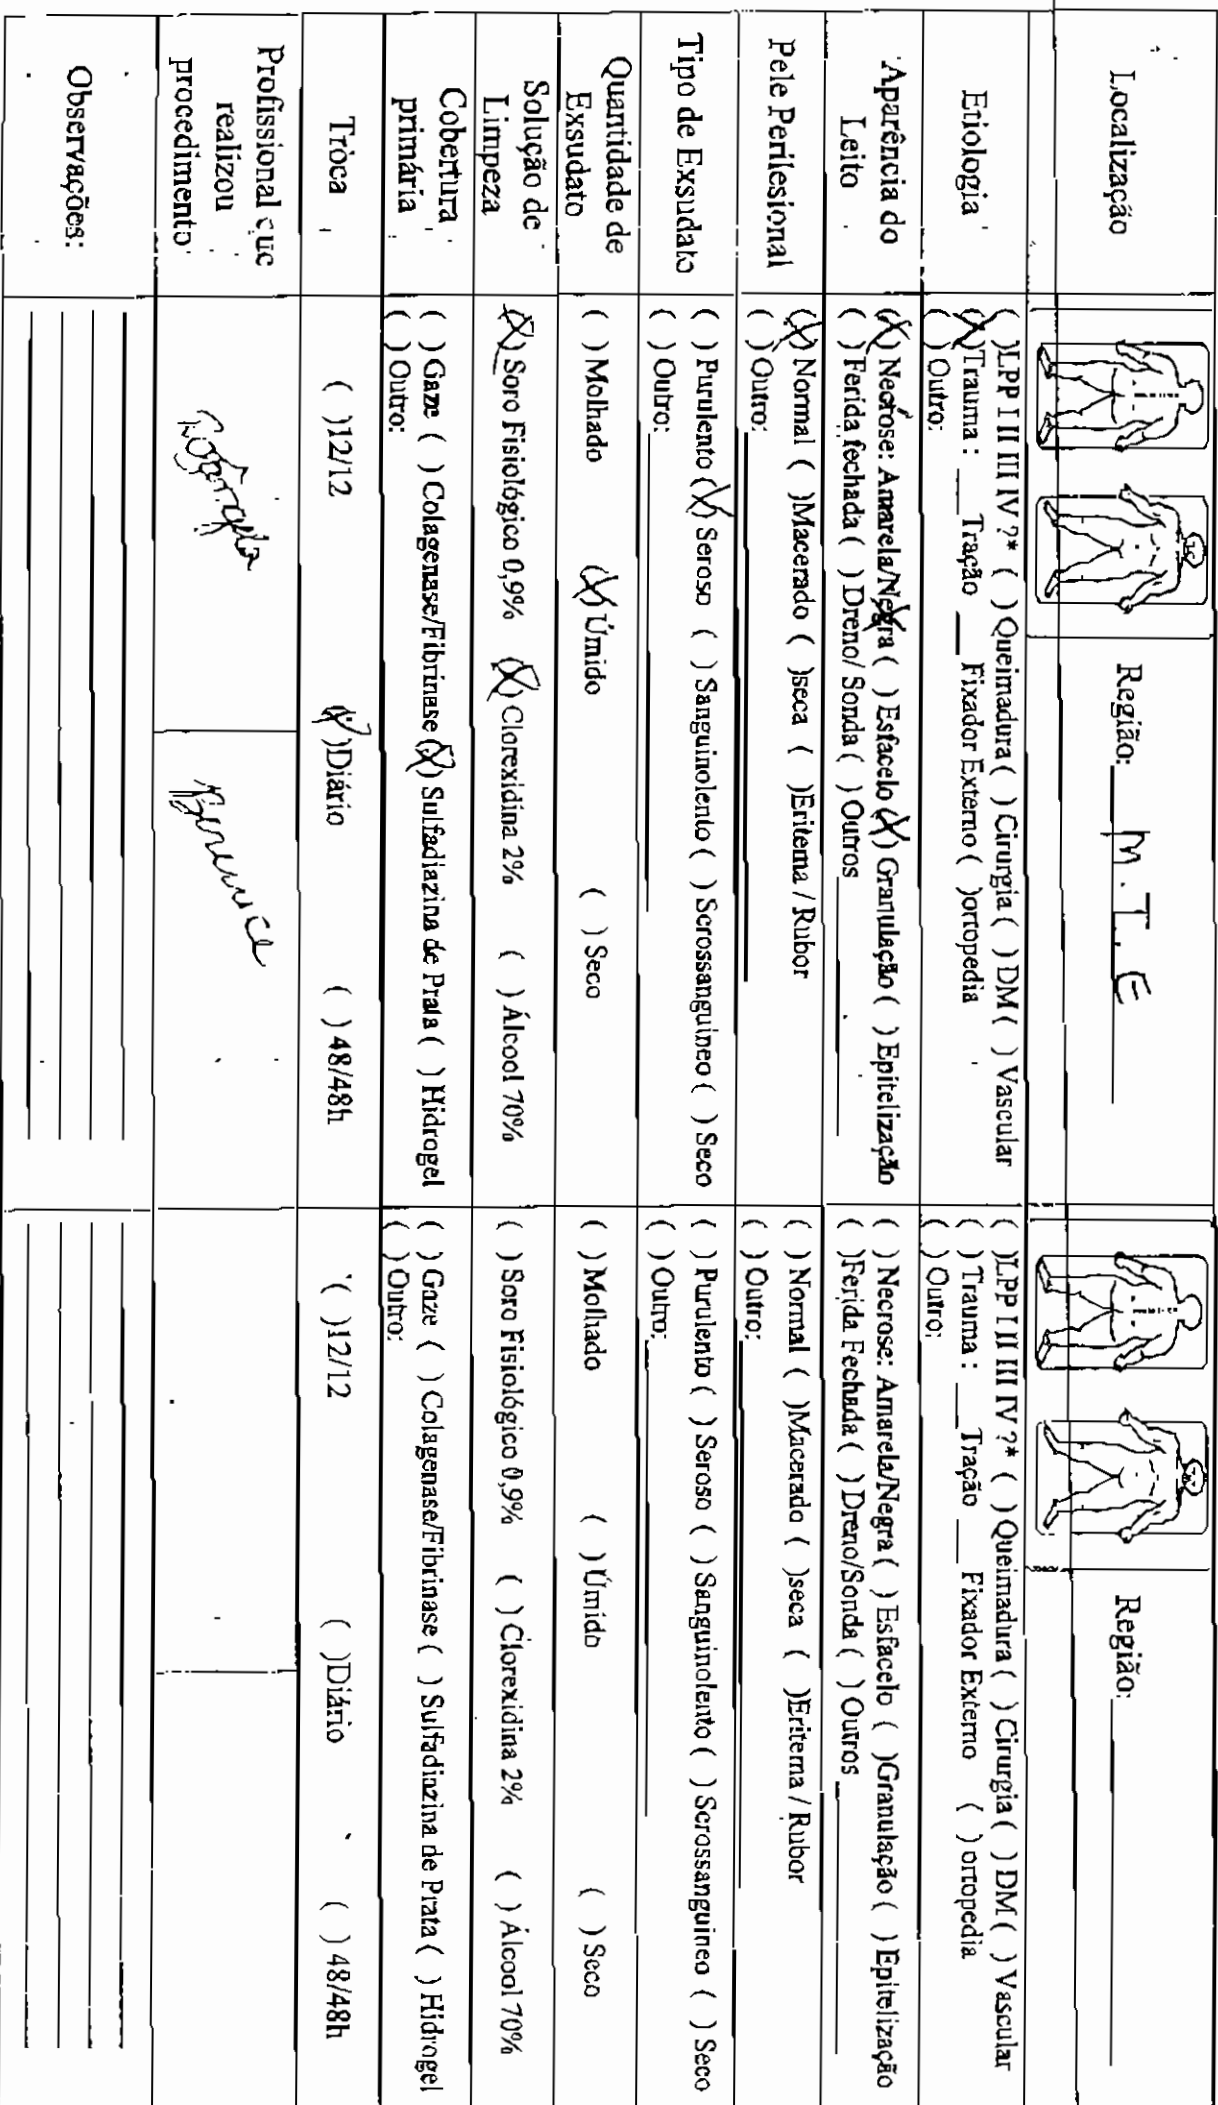 Localização
Região: M.I.E
Região:
Etiologia
( )LPP I II III IV ?* ( ) Queimadura ( ) Cirurgia ( ) DM ( ) Vascular
(X)Trauma : ___ Tração ___ Fixador Externo ( )ortopedia
( ) Outro:
( )LPP I II III IV ?* ( ) Queimadura ( ) Cirurgia ( ) DM ( ) Vascular
( ) Trauma : ___ Tração ___ Fixador Externo ( ) ortopedia
( ) Outro:
Aparência do
Leito
(X) Necrose: Amarela/Negra ( ) Esfacelo (X) Granulação ( ) Epitelização
( ) Ferida fechada ( ) Dreno/ Sonda ( ) Outros
( ) Necrose: Amarela/Negra ( ) Esfacelo ( )Granulação ( ) Epitelização
( )Ferida Fechada ( ) Dreno/Sonda ( ) Outros
Pele Perilesional
(X) Normal ( )Macerado ( )seca ( )Eritema / Rubor
( ) Outro:
( ) Normal ( )Macerado ( )seca ( )Eritema / Rubor
( ) Outro:
Tipo de Exsudato
( ) Purulento (X) Seroso ( ) Sanguinolento ( ) Scrossanguineo ( ) Seco
( ) Outro:
( ) Purulento ( ) Seroso ( ) Sanguinolento ( ) Scrossanguineo ( ) Seco
( ) Outro:
Quantidade de
Exsudato
( ) Molhado (X) Úmido ( ) Seco
( ) Molhado ( ) Úmido ( ) Seco
Solução de
Limpeza
(X) Soro Fisiológico 0,9% (X) Clorexidina 2% ( ) Álcool 70%
( ) Soro Fisiológico 0,9% ( ) Clorexidina 2% ( ) Álcool 70%
Cobertura
primária
( ) Gaze ( ) Colagenase/Fibrinase (X) Sulfadiazina de Prata ( ) Hidrogel
( ) Outro:
( ) Gaze ( ) Colagenase/Fibrinase ( ) Sulfadiazina de Prata ( ) Hidrogel
( ) Outro:
Troca
( )12/12 (X)Diário ( ) 48/48h
( )12/12 ( )Diário ( ) 48/48h
Profissional que
realizou
procedimento
Berenice
Observações: